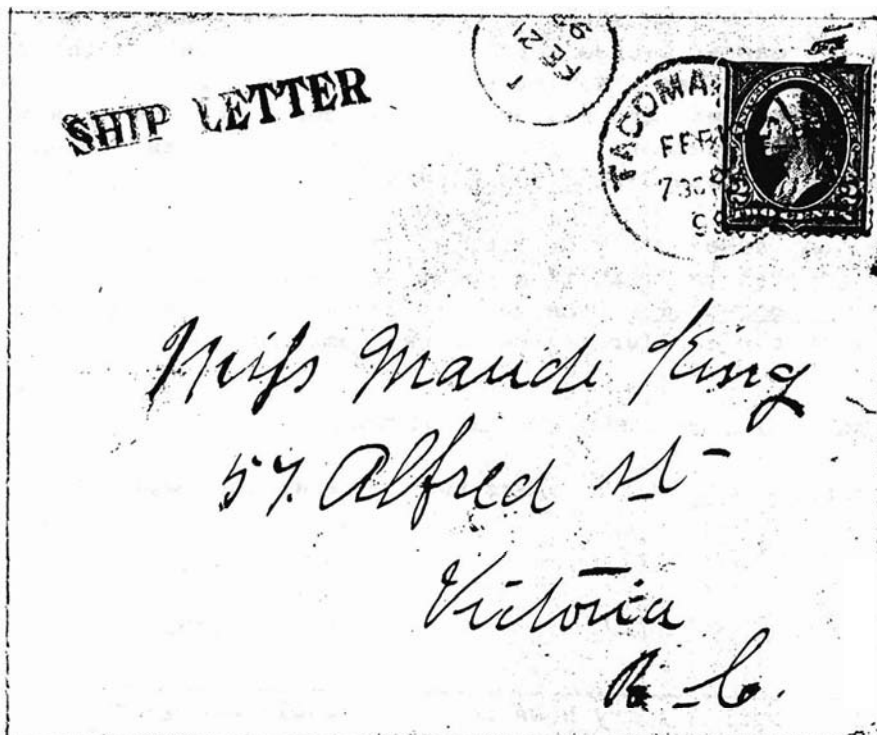 SHIP LETTER
TACOMA
FEB
7 30 P
99
TWO CENTS
Miss Maude King
57. Alfred st
Victoria
B-C.